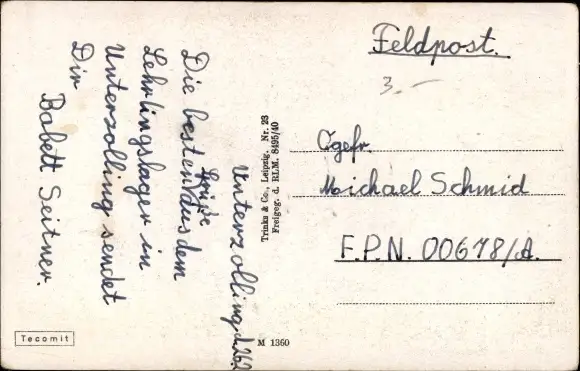 Feldpost.
3.-
Ogefr.
Michael Schmid
F.P.N. 00678/A.
Unterzolling d. 26.2
Die besten Grüße aus dem
Lehrlingslager in
Unterzolling sendet
Dir
Babett Seitner.
Trinks & Co., Leipzig. Nr. 23
Freigeg. d. RLM. 8495/40
Tecomit
M 1360